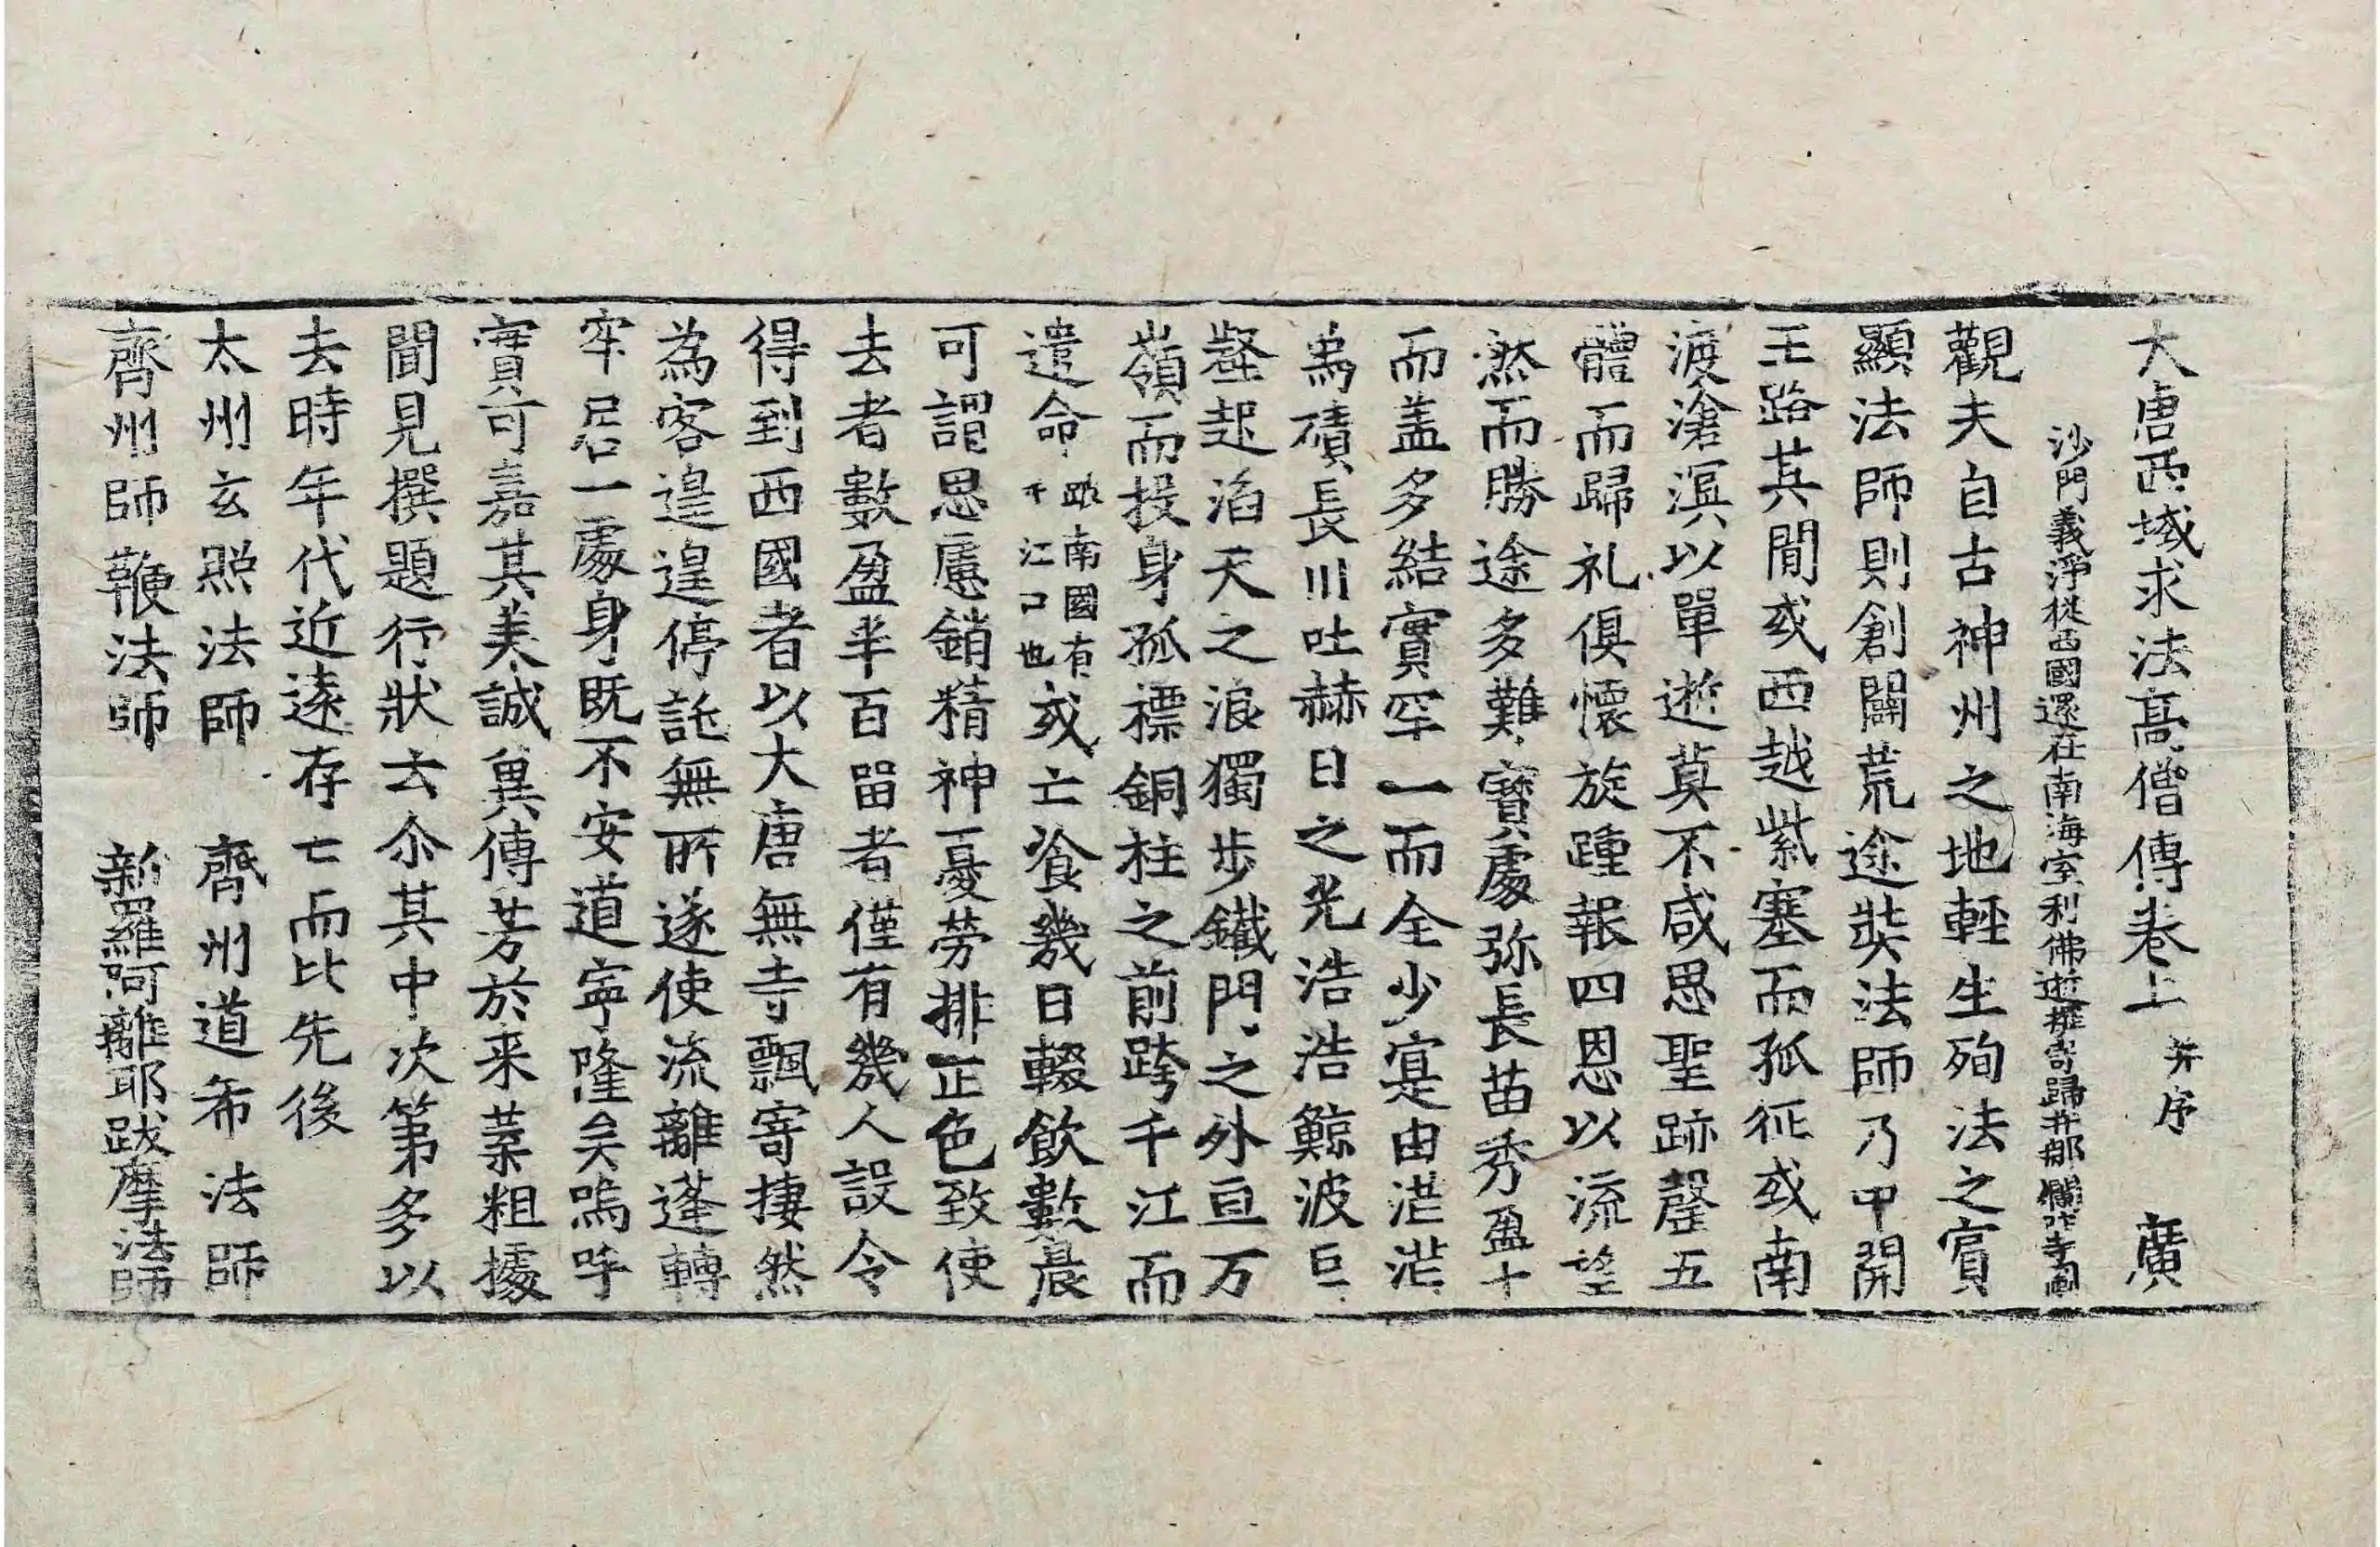 大唐西域求法高僧傳卷上 并序 廣
沙門義淨從西國還在南海室利佛逝撰寄歸并那爛陀寺圖
觀夫自古神州之地輕生殉法之賓
顯法師則創闢荒途奘法師乃中開
王路其閒或西越紫塞而孤征或南
渡滄溟以單逝莫不咸思聖跡罄五
體而歸礼俱懷旋踵報四恩以流望
然而勝途多難寶處弥長苗秀盈十
而盖多結實罕一而全少寔由茫茫
爲磧長川吐赫日之光浩浩鯨波巨
壑起滔天之浪獨步鐵門之外亘万
嶺而投身孤標銅柱之前跨千江而
遣命 跛南國有千江口也 或亡飡幾日輟飲數晨
可謂思慮銷精神憂勞排正色致使
去者數盈半百留者僅有幾人設令
得到西國者以大唐無寺飄寄捿然
為客遑遑停託無所遂使流離蓬轉
牢居一處身既不安道寧隆矣嗚呼
實可嘉其美誠冀傳芳於来葉粗據
聞見撰題行狀云尒其中次第多以
去時年代近遠存亡而比先後
太州玄照法師 齊州道希法師
齊州師鞭法師 新羅阿離耶跋摩法師